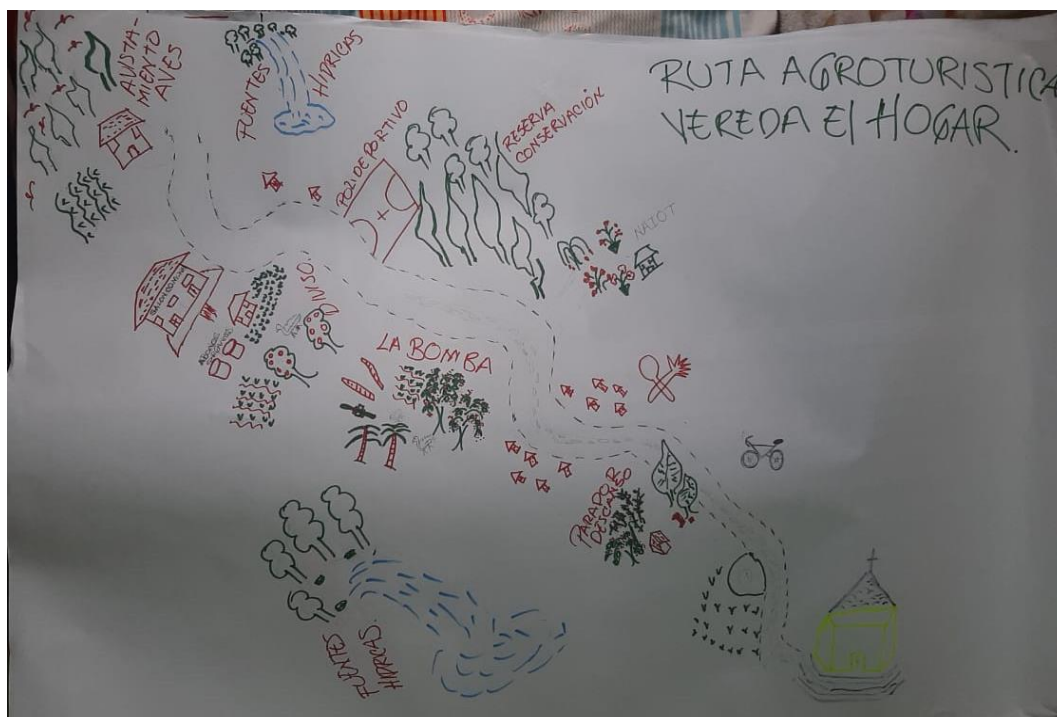 RUTA AGROTURISTICA
VEREDA El HOGAR.
AVISTA-
MIENTO
AVES
FUENTES
HIDRICAS
POLIDEPORTIVO
RESERVA
CONSERVACIÓN
NAIOT
DIVISO.
LA BOMBA
PARADOR
DESCANSO
FUENTES
HIDRICAS.